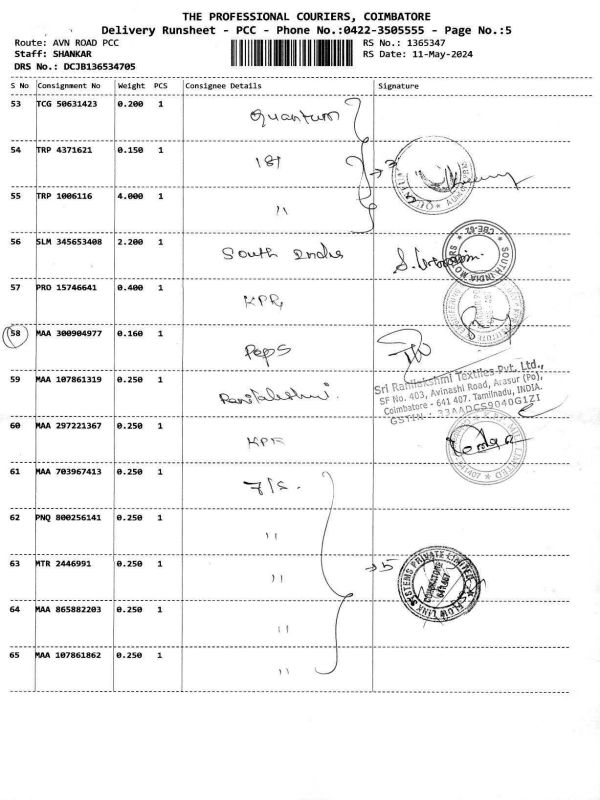 THE PROFESSIONAL COURIERS, COIMBATORE
Delivery Runsheet - PCC - Phone No.:0422-3505555 - Page No.:5
Route: AVN ROAD PCC RS No.: 1365347
Staff: SHANKAR RS Date: 11-May-2024
DRS No.: DCJB136534705
S No Consignment No Weight PCS Consignee Details Signature
53 TCG 50631423 0.200 1 Quantum
54 TRP 4371621 0.150 1 → 3
55 TRP 1006116 4.000 1 "
56 SLM 345653408 2.200 1 South India SOUTH INDIA MOTORS CBE-62
57 PRO 15746641 0.400 1 KPR
58 MAA 300904977 0.160 1 Pops
59 MAA 107861319 0.250 1
Sri Ranilakshmi Textiles Pvt. Ltd.,
SF No. 403, Avinashi Road, Arasur (Po),
Coimbatore - 641 407. Tamilnadu, INDIA.
GSTIN : 33AADCS9040G1ZI
60 MAA 297221367 0.250 1 KPR
61 MAA 703967413 0.250 1
62 PNQ 800256141 0.250 1 "
63 MTR 2446991 0.250 1 " → 5 FLOW LINK SYSTEMS PRIVATE LIMITED COIMBATORE 641 407
64 MAA 865882203 0.250 1 "
65 MAA 107861862 0.250 1 "